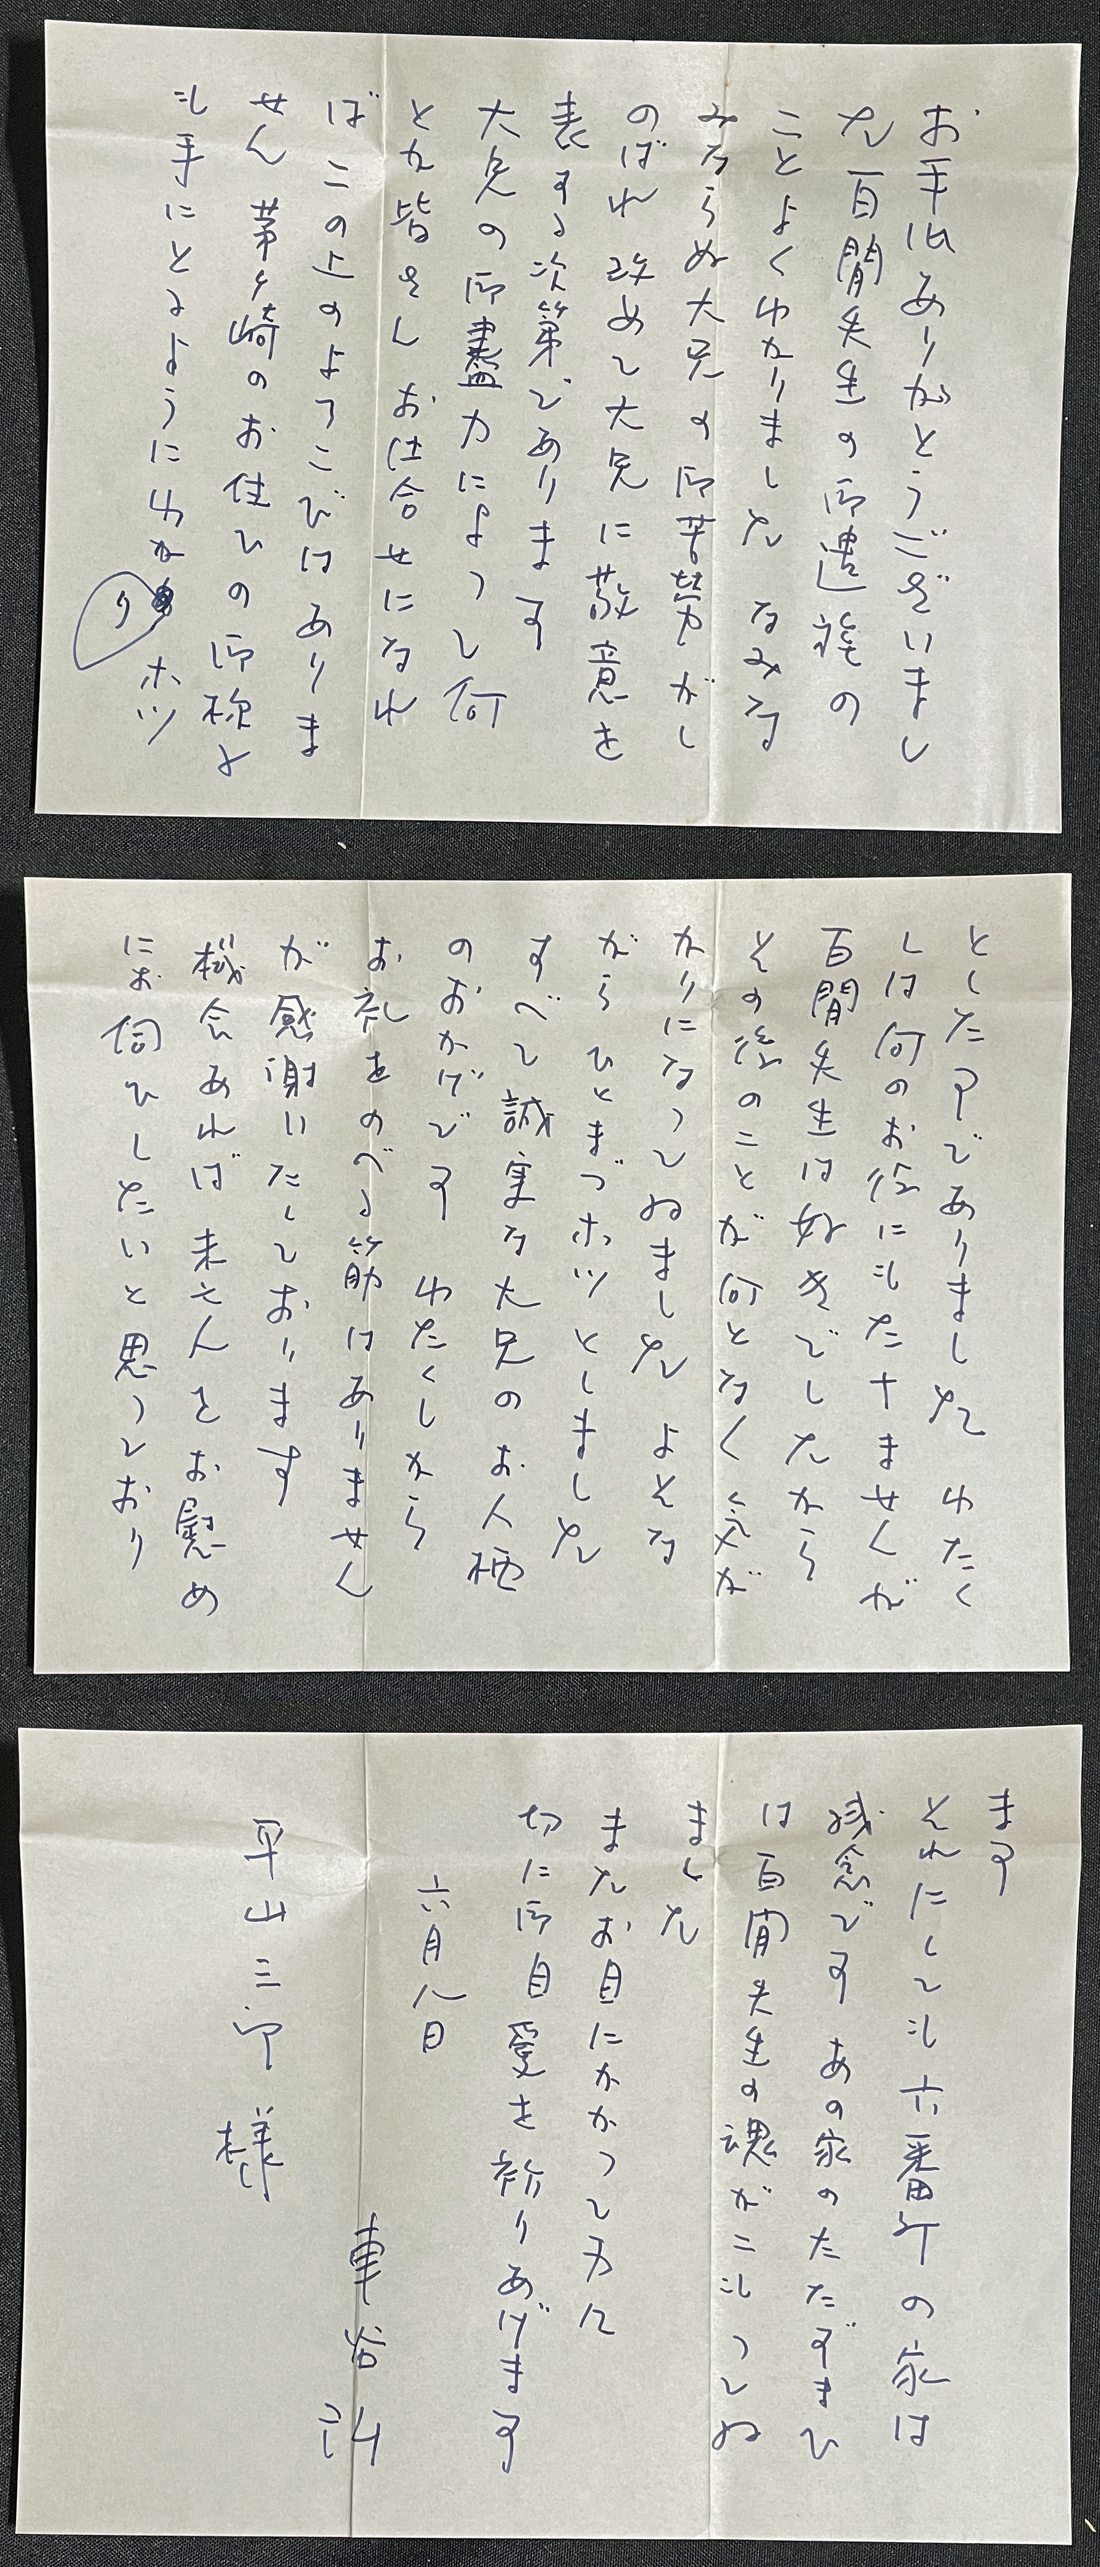 お手紙ありがとうございまし
た 百閒先生の御遺族の
ことよくわかりました なみな
みならぬ大兄の御苦労がし
のばれ 改めて大兄に敬意を
表する次第であります
大兄の御盡力によつて何
とか皆さん お仕合せになれ
ば この上のよろこびはありま
せん 茅ヶ崎のお住ひの御様と
も手にとるようにわかり ホツ
としたアでありました わたく
しは何のお役にもたちませんが
百閒先生は好きでしたから
その後のことが何となく気が
かりになつてゐました よそな
がらひとまづホツとしました
すべて誠実な大兄のお人柄
のおかげです わたくしから
お礼をのべる筋はありません
が感謝いたしております
機会あれば未さんをお慰め
にお伺ひしたいと思つており
ます
それにしても六番町の家は
残念です あの家のたたずまひ
は百閒先生の魂がこもつてゐ
ました
またお目にかかつて万々
切に御自愛を祈りあげます
六月八日
車谷弘
平山三郎様